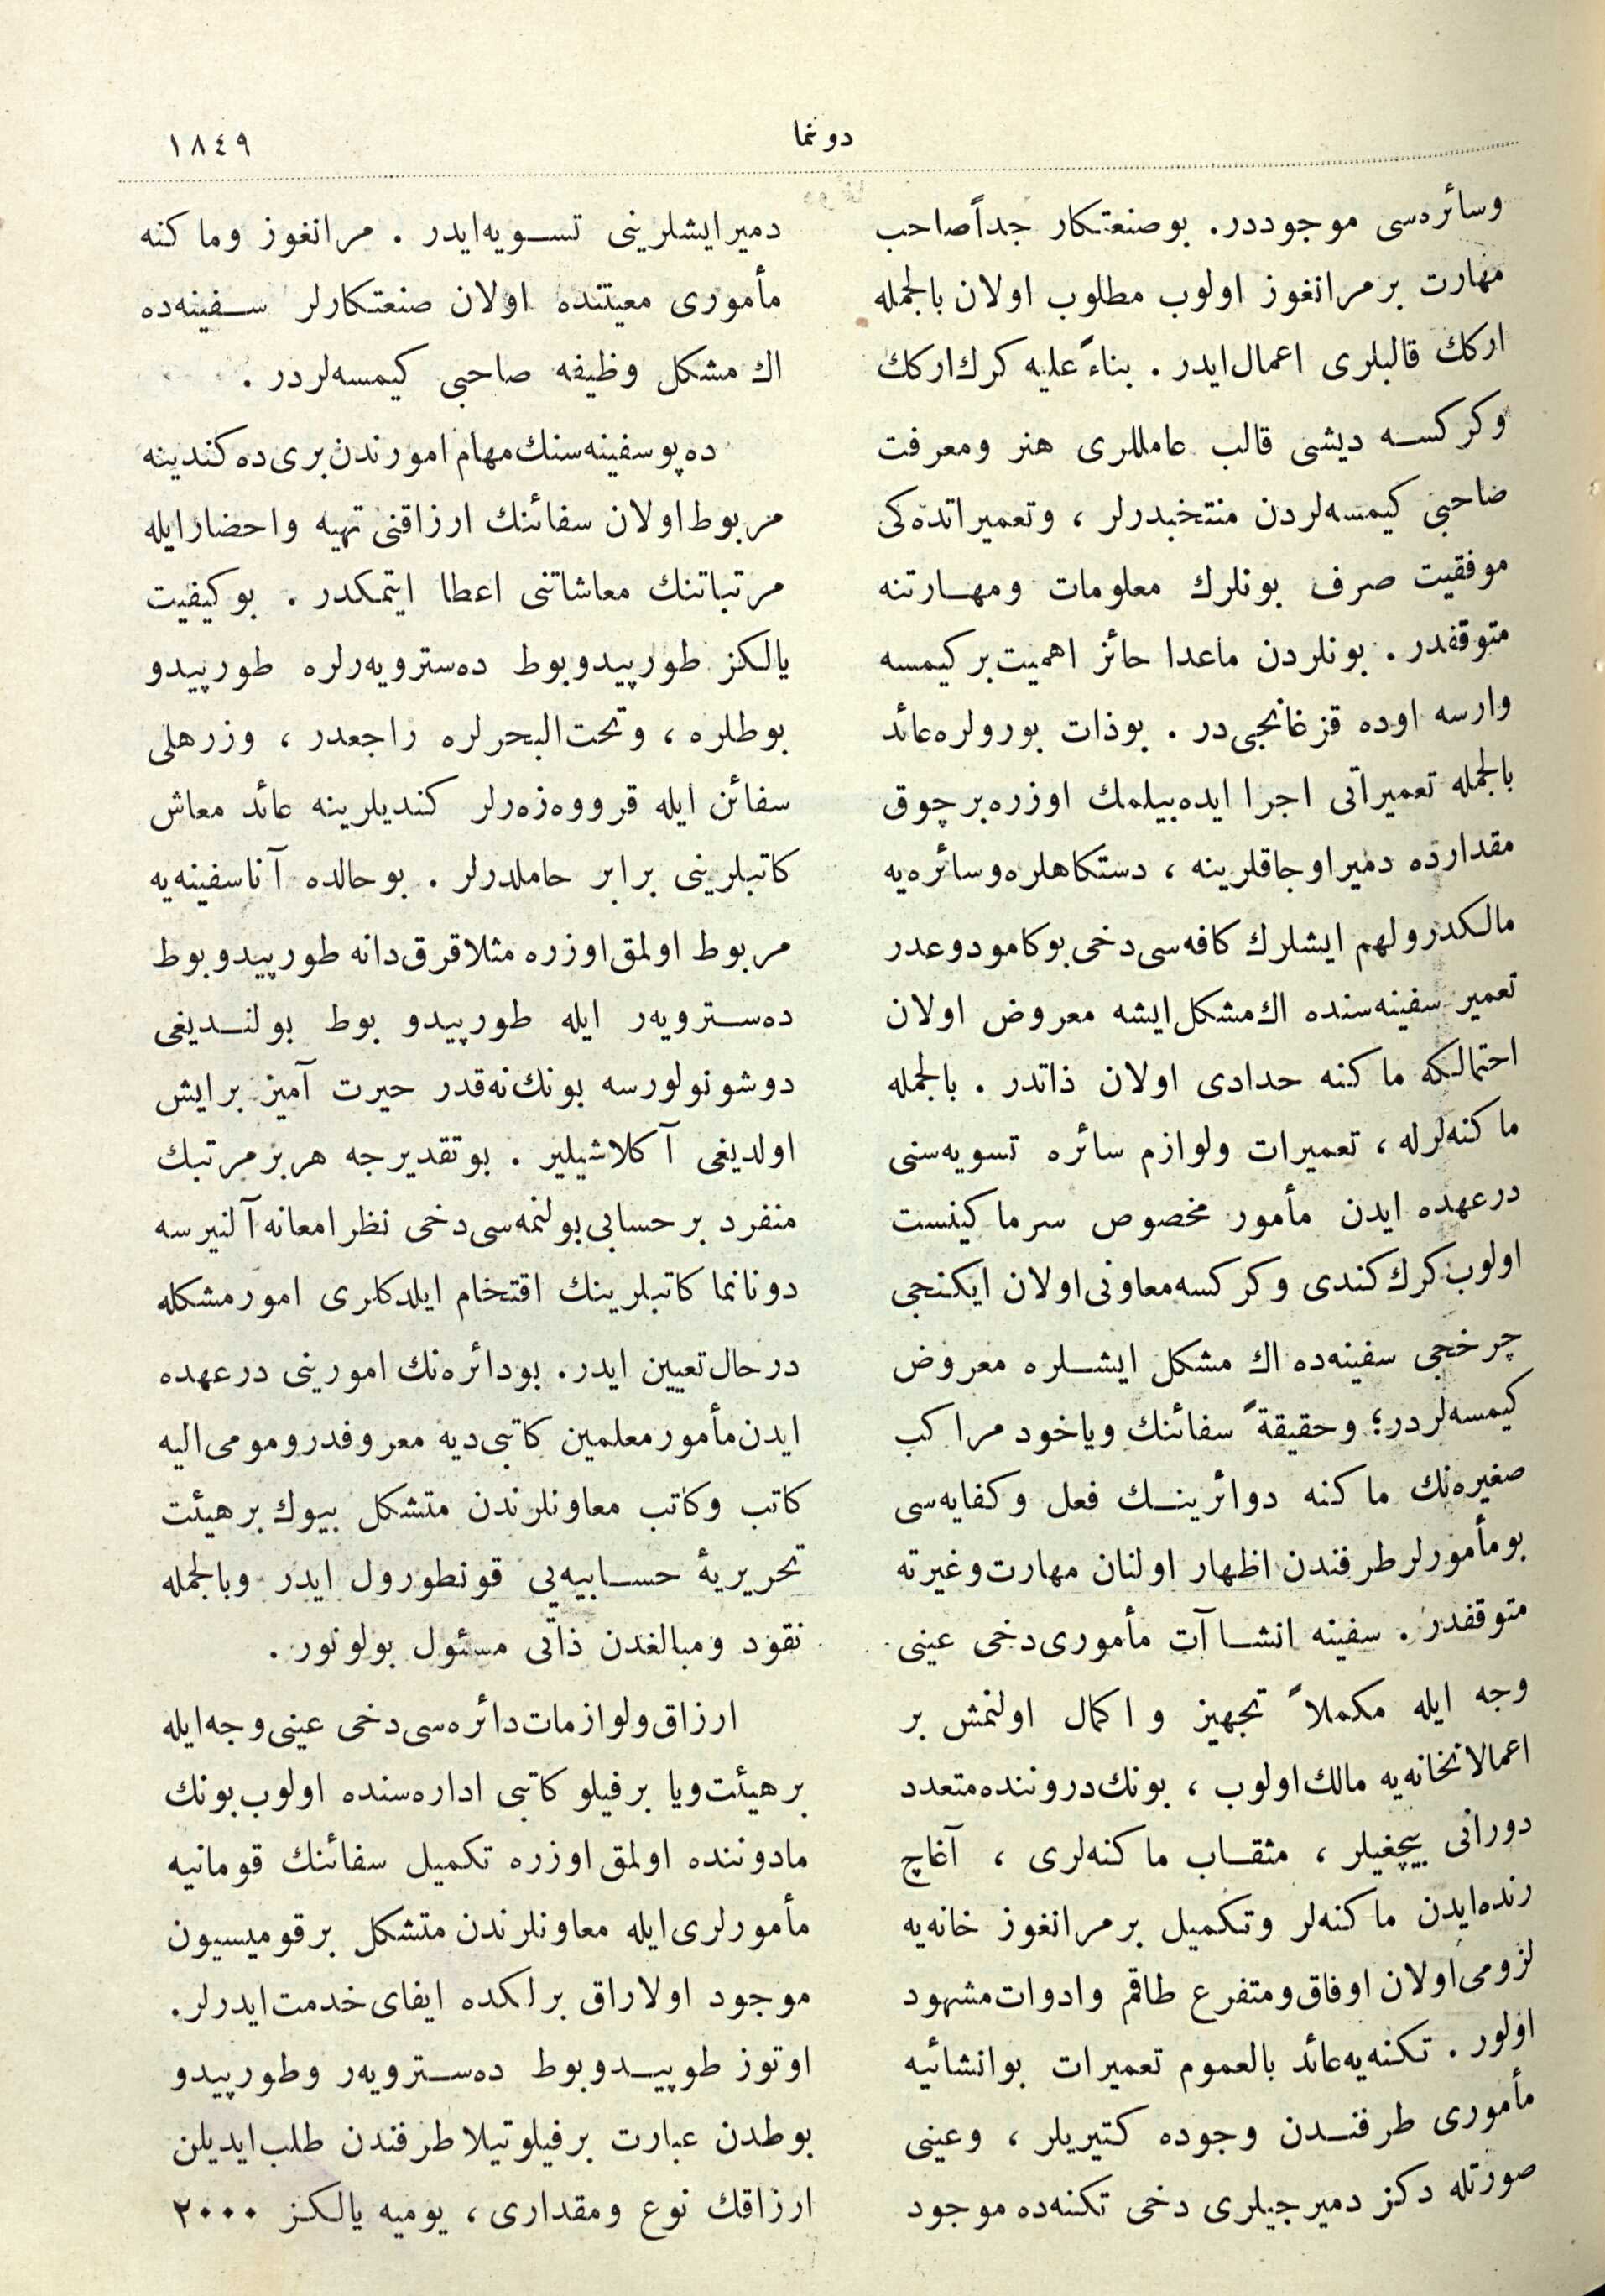 دونما
١٨٤٩
وسائره‌سی موجوددر. بوصنعتکار جداً صاحب
مهارت برمرانغوز اولوب مطلوب اولان بالجمله
ارکک قالبلری اعمال‌ایدر . بناءً علیه کرك‌ارکک
وکرکسـه دیشی قالب عاملاری هنر ومعرفت
صاحبی کیمسه‌لردن منتخبدرلر ، وتعمیراتده‌کی
موفقیت صرف بونلرك معلومات ومهـارتنه
متوقفدر . بونلردن ماعدا حائز اهمیت‌بر کیمسه
وارسه اوده قزغانجی‌در . بوذات بورولره‌عائد
بالجمله تعمیراتی اجرا ایده‌بیلمك اوزره‌برچوق
مقدارده دمیراوجاقلرینه ، دستکاهلره‌وسائره‌یه
مالکدرولهم ایشلرك کافه‌سی‌دخی‌بوکامودوعدر
تعمیر سفینه‌سنده اك‌مشکل‌ایشه معروض اولان
احتمالکه ماکنه حدادی اولان ذاتدر . بالجمله
ماکنه‌لرله ، تعمیرات ولوازم سائره تسویه‌سنی
درعهده ایدن مأمور مخصوص سرماکینست
اولوب‌کرك‌کندی وکرکسه‌معاونی‌اولان ایکنجی
چرخجی سفینه‌ده اك مشکل ایشـلره معروض
کیمسه‌لردر؛ وحقیقةً سفائنك ویاخود مراکب
صغیره‌نك ماکنه دوائرینـك فعل وکفایه‌سی
بومأمورلرطرفندن اظهار اولنان مهارت‌وغیرته
متوقفدر . سفینه انشـاآت مأموری‌دخی عینی
وجه ایله مکملاً تجهیز و اکمال اولنمش بر
اعمالاتخانه‌یه مالك‌اولوب ، بونك‌دروننده‌متعدد
دورانی بیچغیلر ، مثقـاب ماکنه‌لری ، آغاچ
رنده‌ایدن ماکنه‌لر وتکمیل برمرانغوز خانه‌یه
لزومی‌اولان اوفاق‌ومتفرع طاقم وادوات‌مشهود
اولور . تکنه‌یه‌عائد بالعموم تعمیرات بوانشائیه
مأموری طرفنـدن وجوده کتیریلر ، وعینی
صورتله دکز دمیرجیلری دخی تکنه‌ده موجود
دمیرایشلرینی تسـویه‌ایدر . مرانغوز وماکنه
مأموری معیتنده اولان صنعتکارلر سـفینه‌ده
اك مشکل وظیفه صاحبی کیمسه‌لردر .
ده‌پوسفینه‌سنك‌مهام امورندن‌بری‌ده‌کندینه
مربوط‌اولان سفائنك ارزاقنی تهیه واحضارایله
مرتباتنك معاشاتنی اعطا ایتمکدر . بوکیفیت
یالکز طورپیدوبوط ده‌سترویه‌رلره طورپیدو
بوطلره ، وتحت‌البحرلره راجعدر ، وزرهلی
سفائن ایله قرووه‌زه‌رلر کندیلرینه عائد معاش
کاتبلرینی برابر حاملدرلر . بوحالده آناسفینه‌یه
مربوط اولمق‌اوزره مثلاقرق‌دانه طورپیدوبوط
ده‌سـترویه‌ر ایله طورپیدو بوط بولنـدیغی
دوشونولورسه بونك‌نه‌قدر حیرت آمیز برایش
اولدیغی آکلاشیلیر . بوتقدیرجه هربرمرتبك
منفرد برحسابی‌بولنمه‌سی‌دخی نظرامعانه‌آلنیرسه
دونانما کاتبلرینك اقتحام ایلدکلری امورمشکله
درحال‌تعیین ایدر. بودائره‌نك امورینی درعهده
ایدن‌مأمورمعلمین کاتبی‌دیه معروفدرومومی‌الیه
کاتب وکاتب معاونلرندن متشکل بیوك برهیئت
تحریریهٔ حسـابیه‌یی قونطورول ایدر وبالجمله
نقود ومبالغدن ذاتی مسئول بولونور .
ارزاق‌ولوازمات‌دائره‌سی‌دخی عینی‌وجه‌ایله
برهیئت‌ویا برفیلو کاتبی اداره‌سنده اولوب‌بونك
مادوننده اولمق‌اوزره تکمیل سفائنك قومانیه
مأمورلری‌ایله معاونلرندن متشکل برقومیسیون
موجود اولاراق برلکده ایفای خدمت‌ایدرلر.
اوتوز طوپیـدوبوط ده‌سـترویه‌ر وطورپیدو
بوطدن عبارت برفیلوتیلا طرفندن طلب‌ایدیلن
ارزاقك نوع ومقداری ، یومیه یالکز ٢٠٠٠